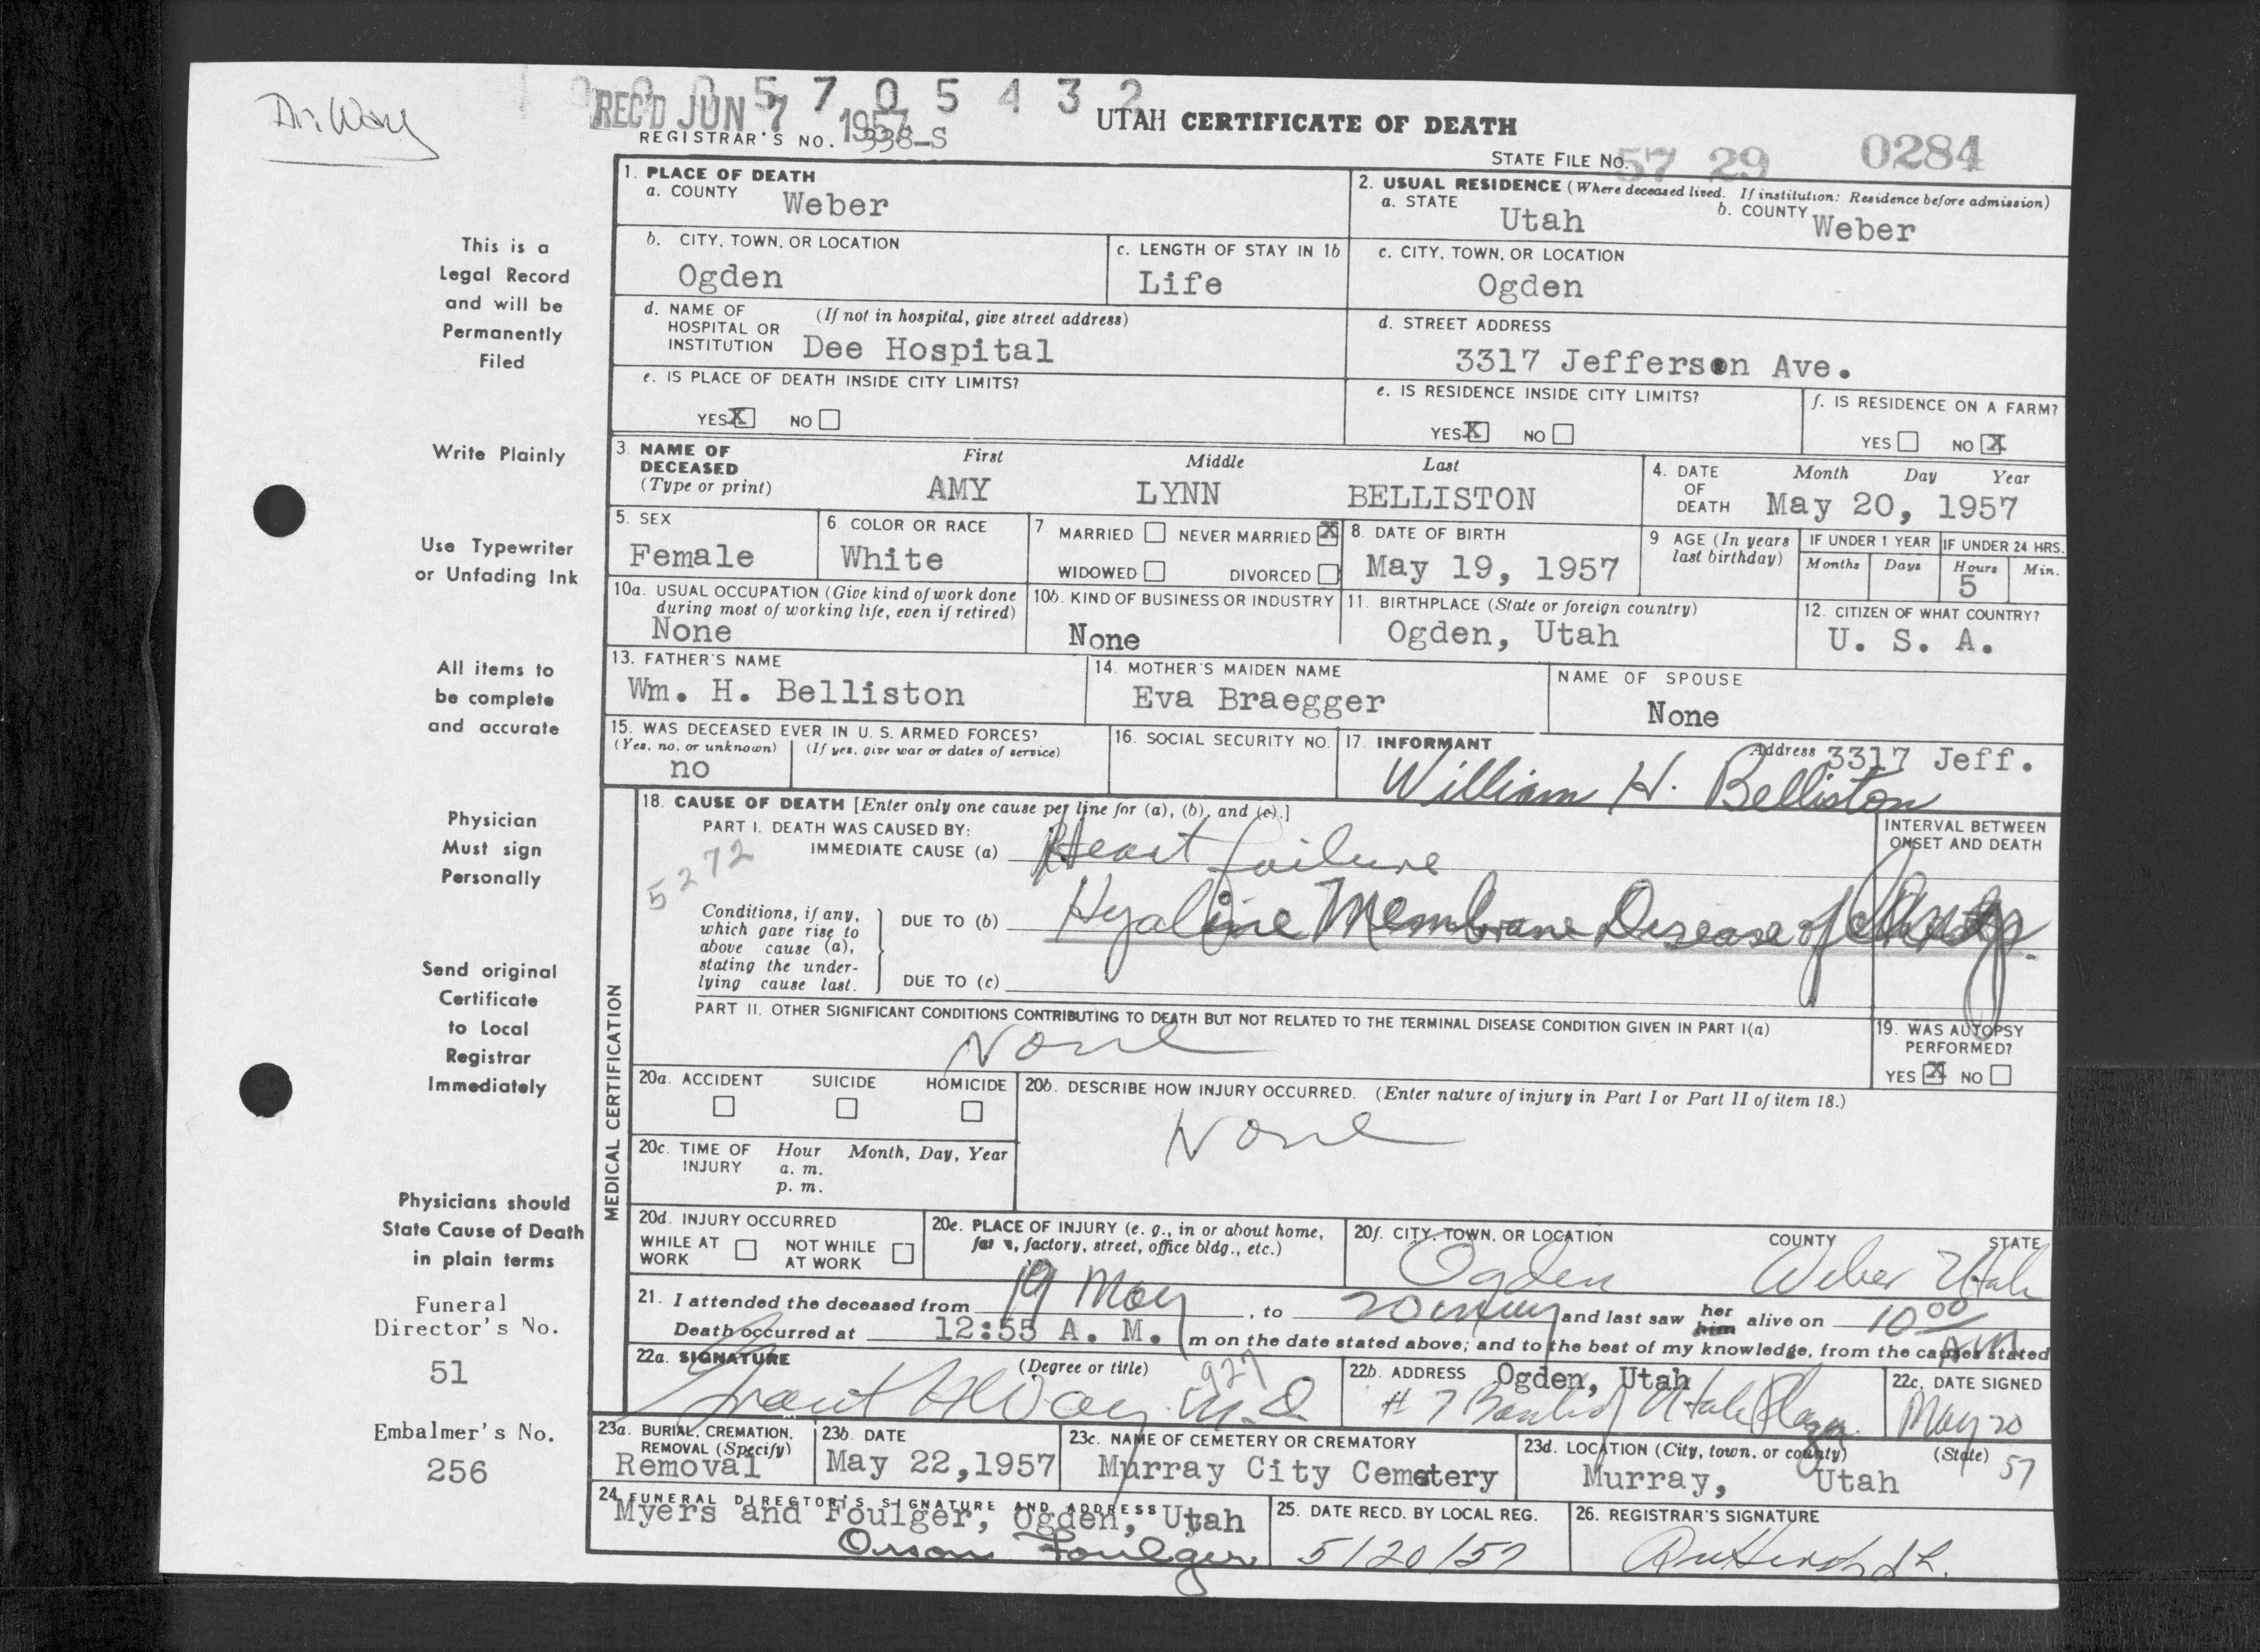 Dr. Way
0 0 0 5 7 0 5 4 3 2
REC'D JUN 7 1957
UTAH CERTIFICATE OF DEATH
REGISTRAR'S NO. 338-S
STATE FILE NO. 57 29 0284
1. PLACE OF DEATH
a. COUNTY Weber
2. USUAL RESIDENCE (Where deceased lived. If institution: Residence before admission)
a. STATE Utah b. COUNTY Weber
b. CITY, TOWN, OR LOCATION Ogden
c. LENGTH OF STAY IN 1b Life
c. CITY, TOWN, OR LOCATION Ogden
d. NAME OF HOSPITAL OR INSTITUTION (If not in hospital, give street address) Dee Hospital
d. STREET ADDRESS 3317 Jefferson Ave.
e. IS PLACE OF DEATH INSIDE CITY LIMITS?
YES X NO
e. IS RESIDENCE INSIDE CITY LIMITS?
YES X NO
f. IS RESIDENCE ON A FARM?
YES NO X
3. NAME OF DECEASED (Type or print)
First Middle Last
AMY LYNN BELLISTON
4. DATE OF DEATH Month Day Year
May 20, 1957
5. SEX Female
6. COLOR OR RACE White
7 MARRIED NEVER MARRIED X
WIDOWED DIVORCED
8. DATE OF BIRTH May 19, 1957
9 AGE (In years last birthday)
IF UNDER 1 YEAR Months Days
IF UNDER 24 HRS. Hours 5 Min.
10a. USUAL OCCUPATION (Give kind of work done during most of working life, even if retired)
None
10b. KIND OF BUSINESS OR INDUSTRY
None
11. BIRTHPLACE (State or foreign country)
Ogden, Utah
12. CITIZEN OF WHAT COUNTRY?
U. S. A.
13. FATHER'S NAME
Wm. H. Belliston
14. MOTHER'S MAIDEN NAME
Eva Braegger
NAME OF SPOUSE
None
15. WAS DECEASED EVER IN U. S. ARMED FORCES?
(Yes, no, or unknown) (If yes, give war or dates of service)
no
16. SOCIAL SECURITY NO.
17. INFORMANT Address 3317 Jeff.
William H. Belliston
18. CAUSE OF DEATH [Enter only one cause per line for (a), (b), and (c).]
PART I. DEATH WAS CAUSED BY:
IMMEDIATE CAUSE (a) Heart failure
INTERVAL BETWEEN ONSET AND DEATH
5272
Conditions, if any, which gave rise to above cause (a), stating the underlying cause last.
DUE TO (b) Hyaline Membrane Disease of Lungs.
DUE TO (c)
PART II. OTHER SIGNIFICANT CONDITIONS CONTRIBUTING TO DEATH BUT NOT RELATED TO THE TERMINAL DISEASE CONDITION GIVEN IN PART I(a)
None
19. WAS AUTOPSY PERFORMED?
YES X NO
MEDICAL CERTIFICATION
20a. ACCIDENT SUICIDE HOMICIDE
20b. DESCRIBE HOW INJURY OCCURRED. (Enter nature of injury in Part I or Part II of item 18.)
None
20c. TIME OF INJURY Hour Month, Day, Year
a. m.
p. m.
20d. INJURY OCCURRED
WHILE AT WORK NOT WHILE AT WORK
20e. PLACE OF INJURY (e. g., in or about home, farm, factory, street, office bldg., etc.)
20f. CITY, TOWN, OR LOCATION COUNTY STATE
Ogden Weber Utah
21. I attended the deceased from 19 May, to 20 May and last saw her him alive on 10 00 AM
Death occurred at 12:55 A. M. m on the date stated above; and to the best of my knowledge, from the causes stated
22a. SIGNATURE (Degree or title) 927
Grant H Way M.D
22b. ADDRESS Ogden, Utah
# 7 Bank of Utah Plaza
22c. DATE SIGNED
May 20 57
23a. BURIAL, CREMATION, REMOVAL (Specify)
Removal
23b. DATE
May 22,1957
23c. NAME OF CEMETERY OR CREMATORY
Murray City Cemetery
23d. LOCATION (City, town, or county) (State)
Murray, Utah
24. FUNERAL DIRECTOR'S SIGNATURE AND ADDRESS
Myers and Foulger, Ogden, Utah
Orson Foulger
25. DATE RECD. BY LOCAL REG.
5/20/57
26. REGISTRAR'S SIGNATURE
This is a
Legal Record
and will be
Permanently
Filed
Write Plainly
Use Typewriter
or Unfading Ink
All items to
be complete
and accurate
Physician
Must sign
Personally
Send original
Certificate
to Local
Registrar
Immediately
Physicians should
State Cause of Death
in plain terms
Funeral
Director's No.
51
Embalmer's No.
256